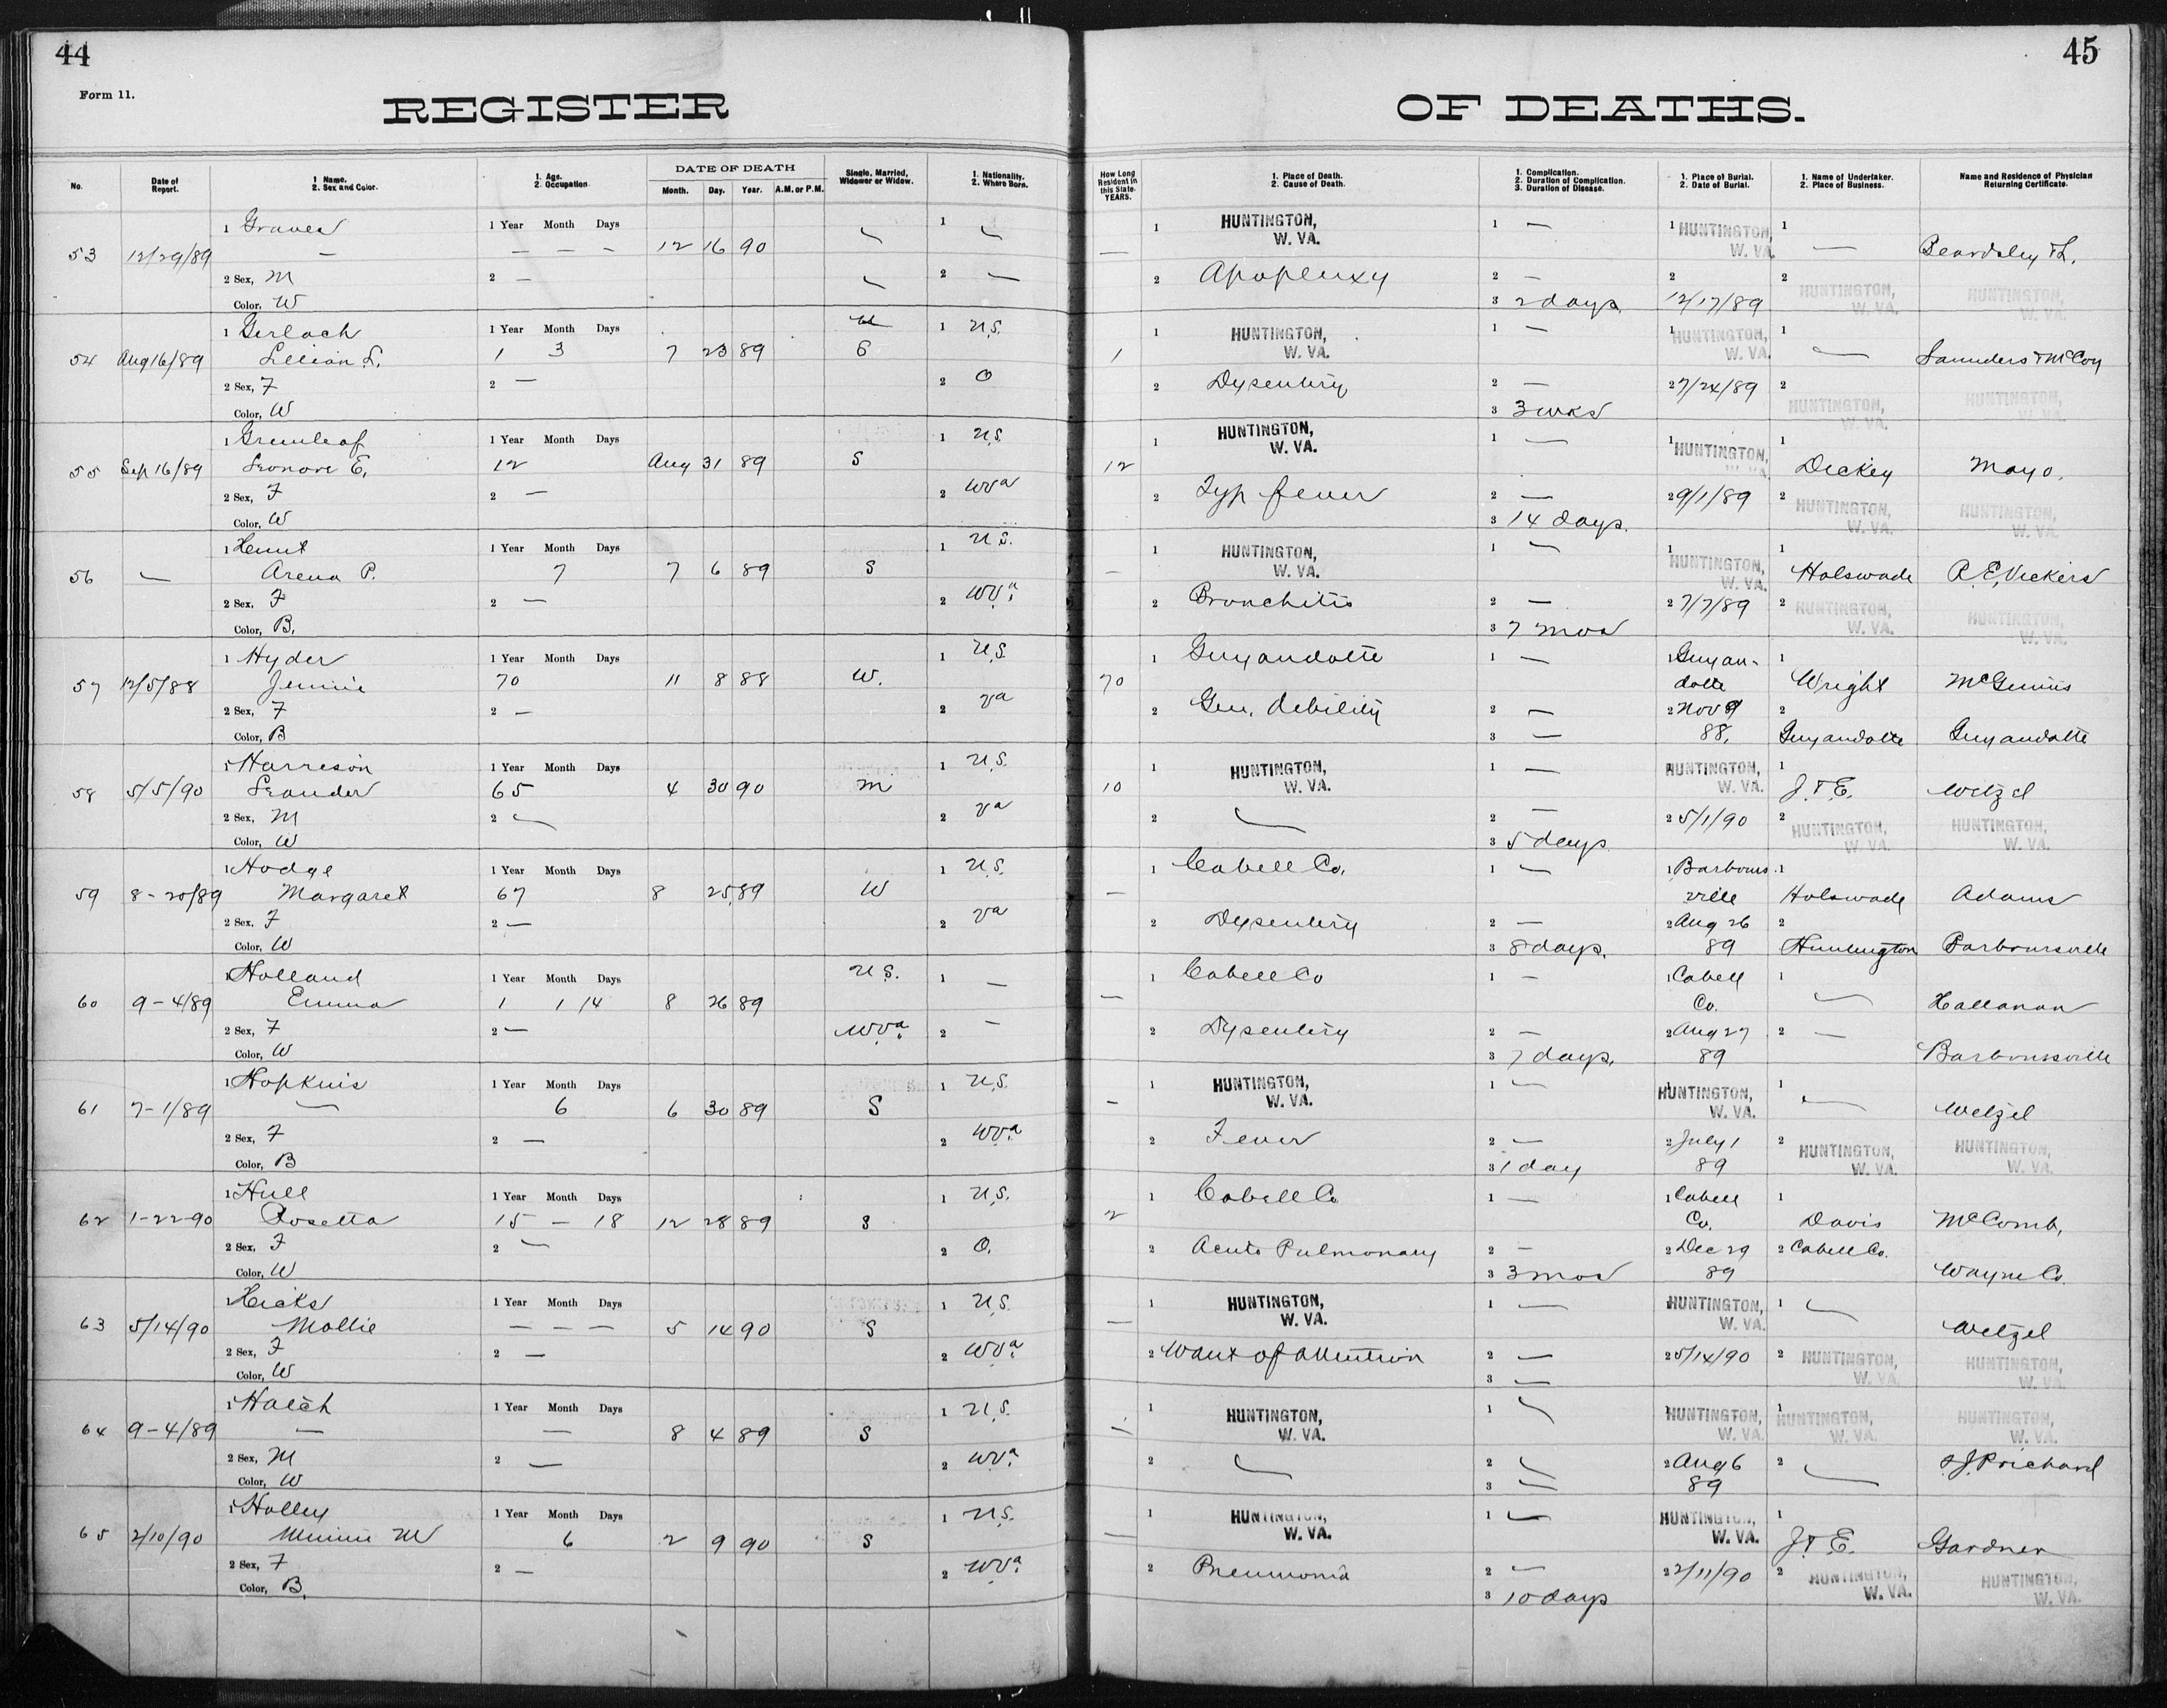 44
45
Form 11.
REGISTER OF DEATHS.
No.
Date of Report.
1 Name. 2. Sex and Color.
1. Age. 2. Occupation.
DATE OF DEATH
Month. Day. Year. A.M. or P.M.
Single, Married, Widower or Widow.
1. Nationality. 2. Where Born.
How Long Resident in this State. YEARS.
1. Place of Death. 2. Cause of Death.
1. Complication. 2. Duration of Complication. 3. Duration of Disease.
1. Place of Burial. 2. Date of Burial.
1. Name of Undertaker. 2. Place of Business.
Name and Residence of Physician Returning Certificate.
1 Graves 1 Year Month Days 1 — 1 HUNTINGTON, W. VA. 1 — 1 HUNTINGTON, W. VA. 1
53 12/29/89 — — — — 12 16 90 — — — Beardsley
2 Sex, M 2 — — 2 — 2 Apoplexy 2 — 2 2 HUNTINGTON, W. VA. HUNTINGTON, W. VA.
Color, W 3 2 days 12/17/89
1 Gerlach 1 Year Month Days 1 U.S. 1 HUNTINGTON, W. VA. 1 — 1 HUNTINGTON, W. VA. 1
54 Aug 16/89 Lillian L. 1 3 7 23 89 S 1 — Saunders & McCoy
2 Sex, F 2 — 2 O 2 Dysentery 2 — 2 7/24/89 2 HUNTINGTON, W. VA. HUNTINGTON, W. VA.
Color, W 3 3 wks
1 Greenleaf 1 Year Month Days 1 U.S. 1 HUNTINGTON, W. VA. 1 — 1 HUNTINGTON, W. VA. 1
55 Sep 16/89 Leonore E. 12 Aug 31 89 S 12 Dickey Mayo.
2 Sex, F 2 — 2 W Va 2 Typ fever 2 — 2 9/1/89 2 HUNTINGTON, W. VA. HUNTINGTON, W. VA.
Color, W 3 14 days.
1 Hunt 1 Year Month Days 1 U.S. 1 HUNTINGTON, W. VA. 1 — 1 HUNTINGTON, W. VA. 1
56 — Arena P. 7 7 6 89 S — Holswade R.E. Vickers
2 Sex, F 2 — 2 W Va. 2 Bronchitis 2 — 2 7/7/89 2 HUNTINGTON, W. VA. HUNTINGTON, W. VA.
Color, B. 3 7 mos
1 Hyder 1 Year Month Days 1 U.S. 1 Guyandotte 1 — 1 Guyan- 1
57 12/5/88 Jennie 70 11 8 88 W. 70 dotte Wright McGinnis
2 Sex, F 2 — 2 Va 2 Gen. debility 2 — 2 Nov 9 2
Color, B 3 — 88. Guyandotte Guyandotte
1 Harrison 1 Year Month Days 1 U.S. 1 HUNTINGTON, W. VA. 1 — HUNTINGTON, W. VA. 1
58 5/5/90 Leander 65 4 30 90 M 10 J. & E. Wetzel
2 Sex, M 2 — 2 Va 2 — 2 — 2 5/1/90 2 HUNTINGTON, W. VA. HUNTINGTON, W. VA.
Color, W 3 5 days
1 Hodge 1 Year Month Days 1 U.S. 1 Cabell Co. 1 — 1 Barbours 1
59 8-20/89 Margaret 67 8 25 89 W — ville Holswade Adams
2 Sex, F 2 — 2 Va 2 Dysentery 2 — 2 Aug 26 2
Color, W 3 8 days. 89 Huntington Barboursville
1 Holland 1 Year Month Days U.S. 1 — 1 Cabell Co 1 — 1 Cabell 1
60 9-4/89 Emma 1 1 14 8 26 89 — Co. — Hallanan
2 Sex, F 2 — W Va. 2 — 2 Dysentery 2 — 2 Aug 27 2 —
Color, W 3 7 days. 89 Barboursville
1 Hopkins 1 Year Month Days 1 U.S. 1 HUNTINGTON, W. VA. 1 — HUNTINGTON, W. VA. 1
61 7-1/89 — 6 6 30 89 S — — Wetzel
2 Sex, F 2 — 2 W Va. 2 Fever 2 — 2 July 1 2 HUNTINGTON, W. VA. HUNTINGTON, W. VA.
Color, B 3 1 day 89
1 Hull 1 Year Month Days 1 U.S. 1 Cabell Co 1 — 1 Cabell 1
62 1-22-90 Rosetta 15 — 18 12 28 89 S 2 Co. Davis McComb,
2 Sex, F 2 — 2 O. 2 Acute Pulmonary 2 — 2 Dec 29 2 Cabell Co.
Color, W 3 3 mos 89 Wayne Co.
1 Hicks 1 Year Month Days 1 U.S. 1 HUNTINGTON, W. VA. 1 — HUNTINGTON, W. VA. 1 —
63 5/14/90 Mollie — — — 5 14 90 S — Wetzel
2 Sex, F 2 — 2 W Va. 2 Want of attention 2 — 2 5/14/90 2 HUNTINGTON, W. VA. HUNTINGTON, W. VA.
Color, W 3 —
1 Hatch 1 Year Month Days 1 U.S. 1 HUNTINGTON, W. VA. 1 — HUNTINGTON, W. VA. 1 HUNTINGTON, W. VA. HUNTINGTON, W. VA.
64 9-4/89 — — 8 4 89 S —
2 Sex, M 2 — 2 W Va. 2 — 2 — 2 Aug 6 2 — Prichard
Color, W 3 — 89
1 Holley 1 Year Month Days 1 U.S. 1 HUNTINGTON, W. VA. 1 — HUNTINGTON, W. VA. 1
65 2/10/90 Minnie M 6 2 9 90 S — J. & E. Gardner
2 Sex, F 2 — 2 W Va. 2 Pneumonia 2 — 2 2/11/90 2 HUNTINGTON, W. VA. HUNTINGTON, W. VA.
Color, B. 3 10 days